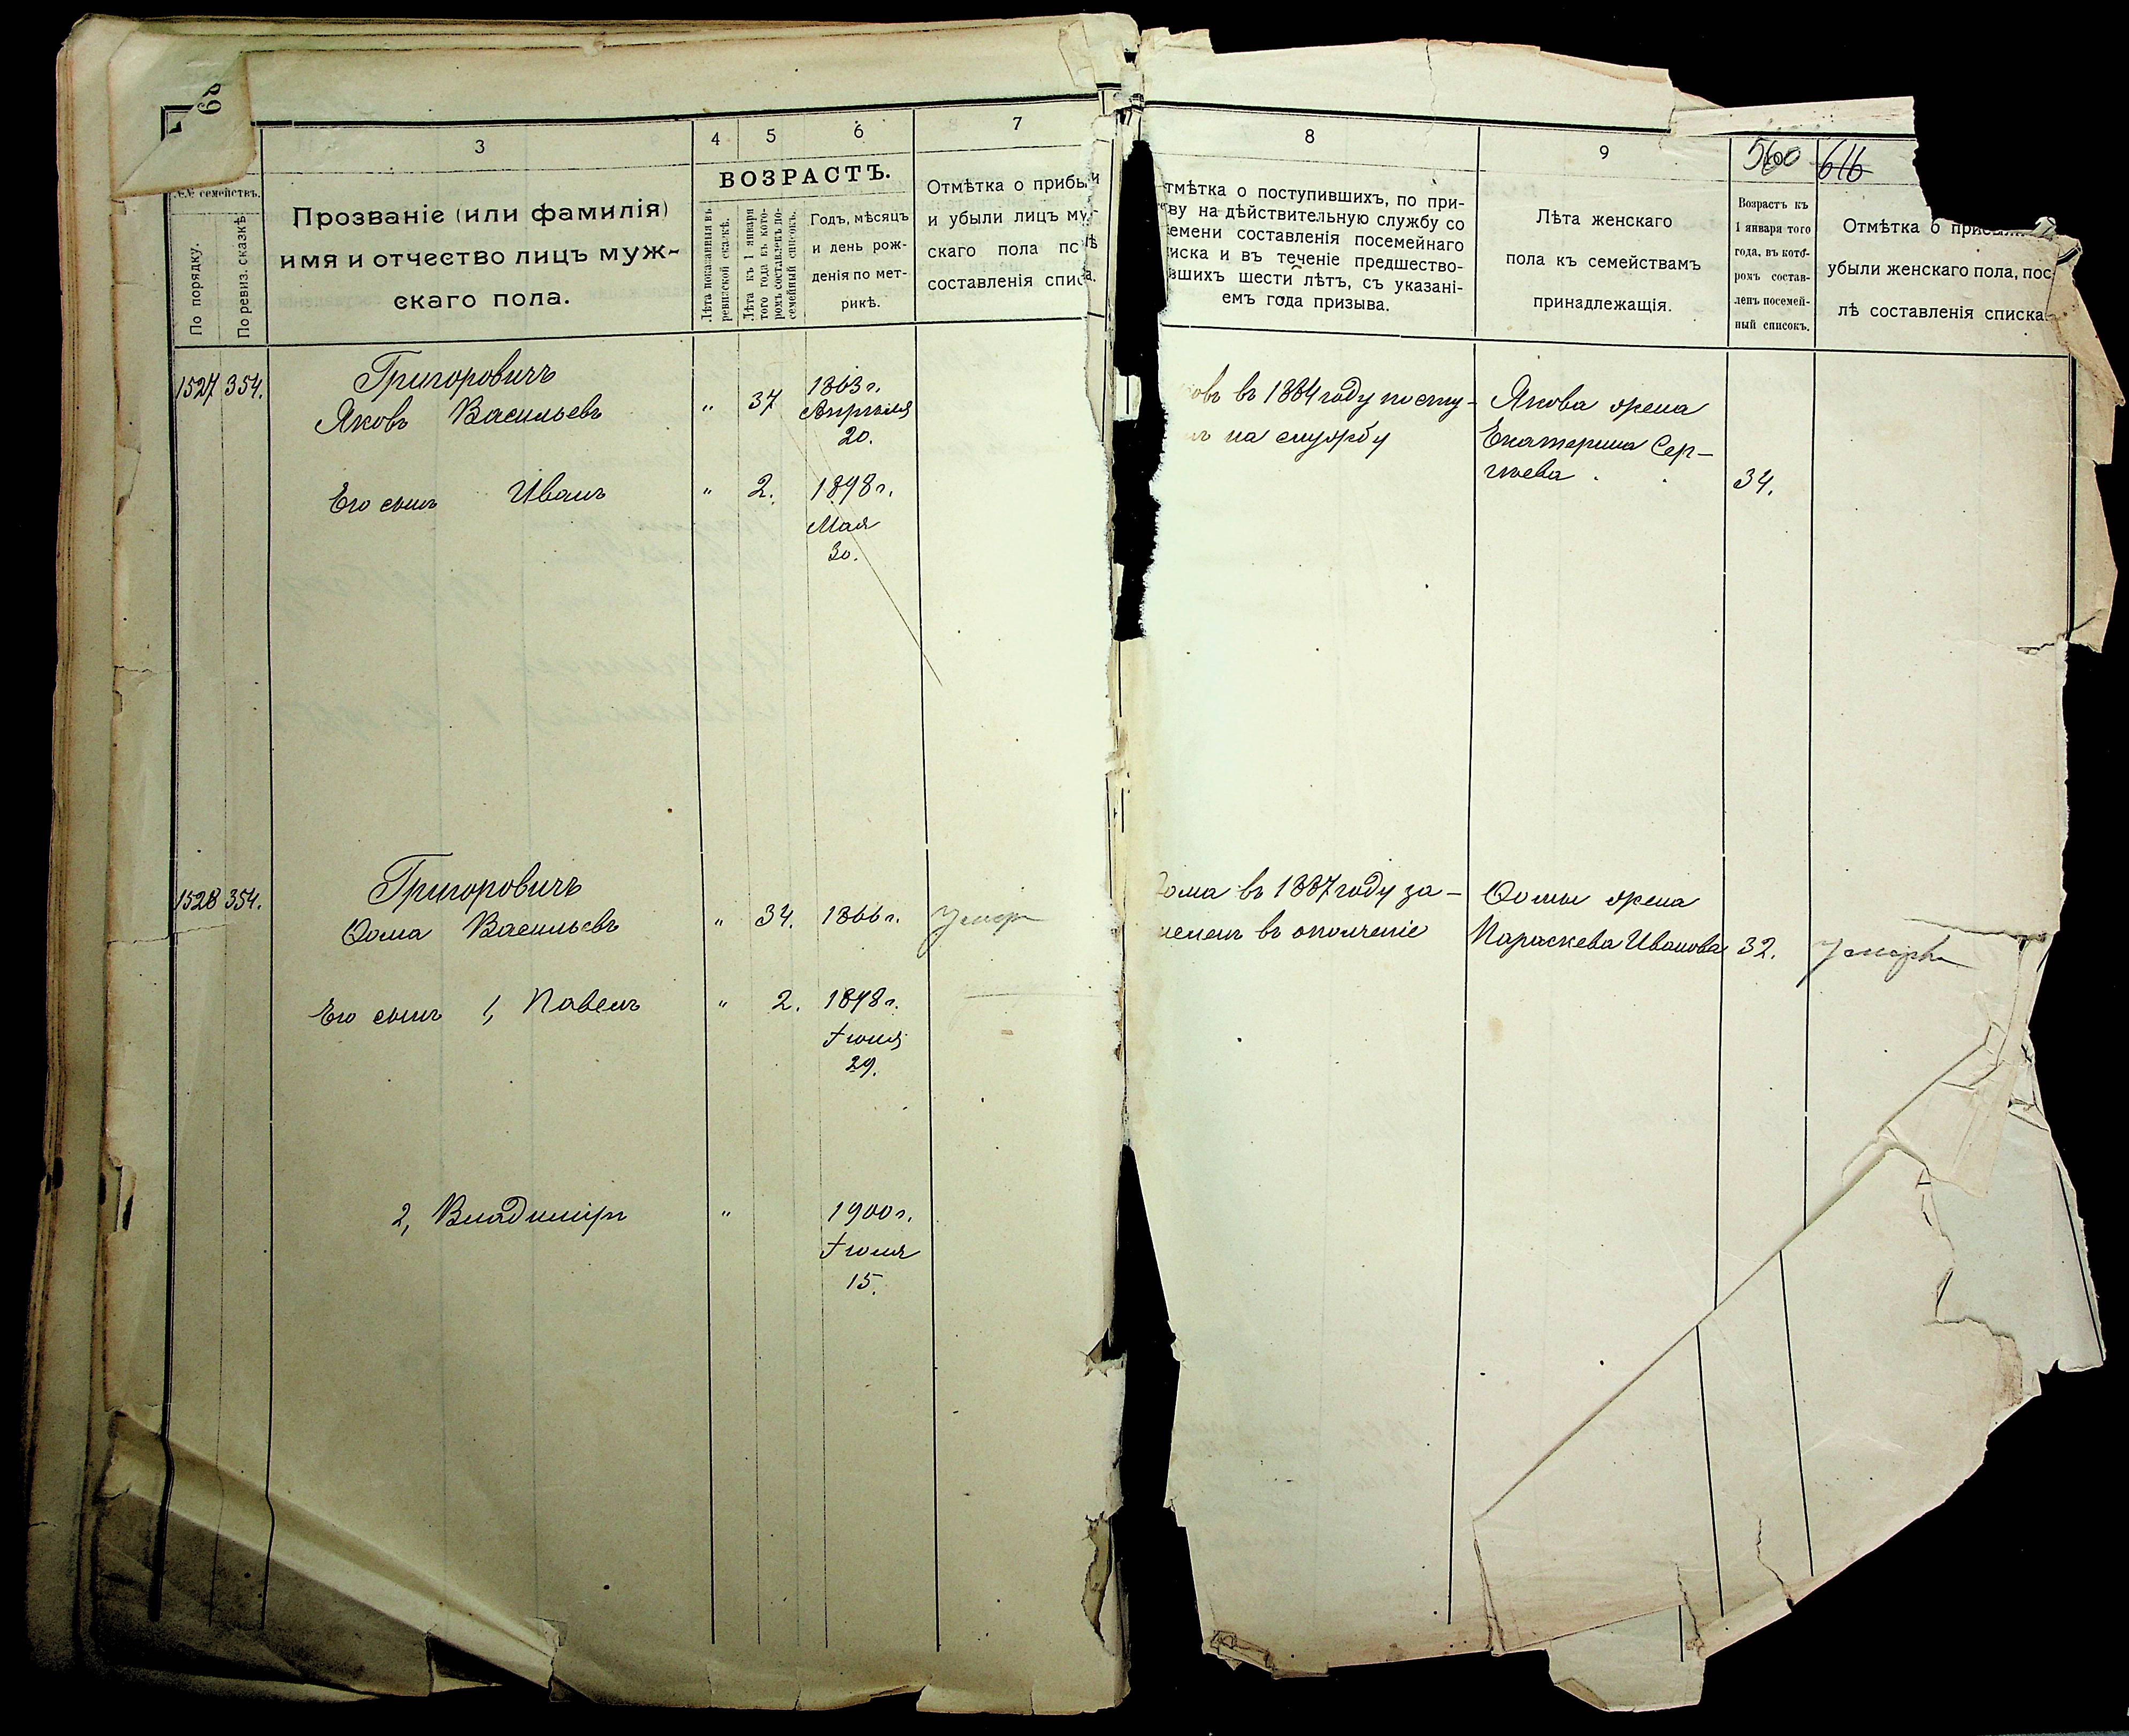 3
4
5
6
7
8
9
560
616
№№ семействъ.
По порядку.
По ревиз. сказкѣ
Прозваніе (или фамилія)
имя и отчество лицъ муж-
скаго пола.
ВОЗРАСТЪ.
Лѣта показанныя въ
ревизской сказкѣ.
Лѣта къ 1 января
того года въ кото-
ромъ составленъ по-
семейный списокъ.
Годъ, мѣсяцъ
и день рож-
денія по мет-
рикѣ.
Отмѣтка о прибыли
и убыли лицъ муж-
скаго пола послѣ
составленія списка.
тмѣтка о поступившихъ, по при-
ву на дѣйствительную службу со
емени составленія посемейнаго
иска и въ теченіе предшество-
вшихъ шести лѣтъ, съ указані-
емъ года призыва.
Лѣта женскаго
пола къ семействамъ
принадлежащія.
Возрастъ къ
1 января того
года, въ кото-
ромъ состав-
ленъ посемей-
ный списокъ.
Отмѣтка о
убыли женскаго пола, пос
лѣ составленія списка.
1527 354.
Григоровичъ
Яковъ Васильевъ
" 37
1863 г.
Апрѣля
20.
ковъ въ 1884 году посту-
лъ на службу
Якова жена
Екатерина Сер-
гѣева
34.
Его сынъ Иванъ
" 2.
1898 г.
Мая
30.
1528 354.
Григоровичъ
Ѳома Васильевъ
" 34. 1866 г.
Умер
ома въ 1887 году за-
численъ въ ополченіе
Ѳомы жена
Параскева Иванова 32.
Умерла
Его сынъ 1, Павелъ
" 2. 1898 г.
Іюня
29.
2, Владиміръ
" 1900 г.
Іюля
15.